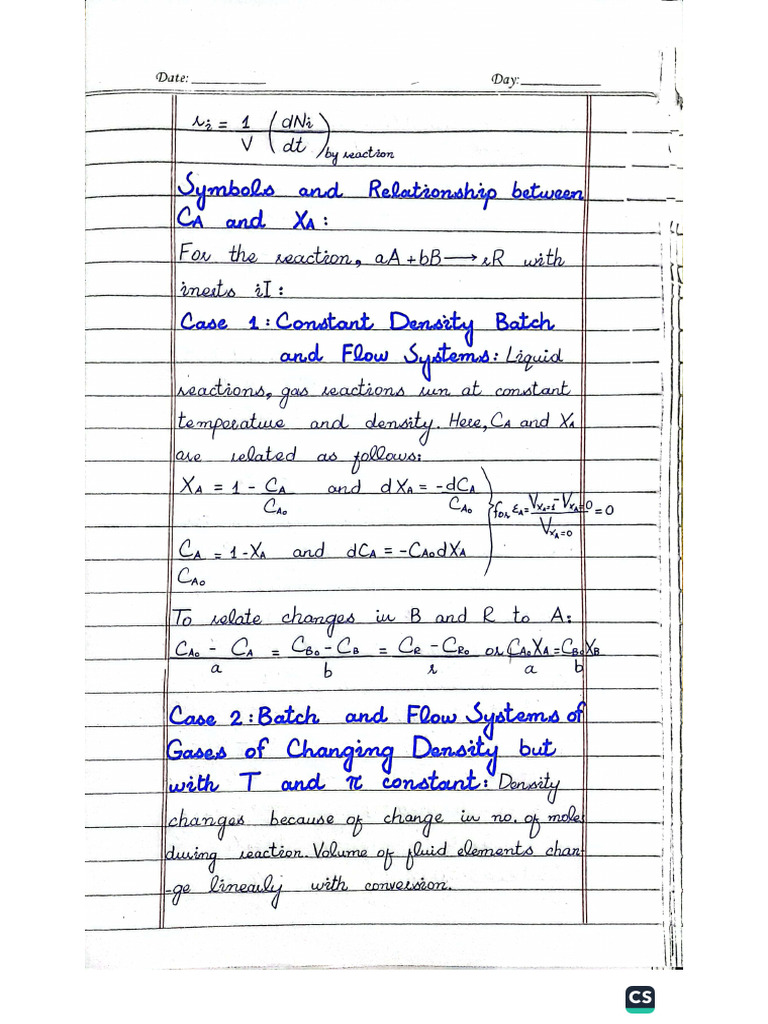 Date: __________ Day: __________
r_i = 1/V (dN_i/dt) by reaction
Symbols and Relationship between
C_A and X_A :
For the reaction, aA + bB ⟶ rR with
inerts iI :
Case 1: Constant Density Batch
and Flow Systems: Liquid
reactions, gas reactions run at constant
temperature and density. Here, C_A and X_A
are related as follows:
X_A = 1 - C_A/C_Ao and dX_A = -dC_A/C_Ao } for ε_A = (V_{X_A=1} - V_{X_A=0})/V_{X_A=0} = 0
C_A/C_Ao = 1-X_A and dC_A = -C_Ao dX_A
To relate changes in B and R to A:
(C_Ao - C_A)/a = (C_Bo - C_B)/b = (C_R - C_Ro)/r or C_Ao X_A/a = C_Bo X_B/b
Case 2: Batch and Flow Systems of
Gases of Changing Density but
with T and π constant: Density
changes because of change in no. of moles
during reaction. Volume of fluid elements chan-
-ge linearly with conversion.
CS